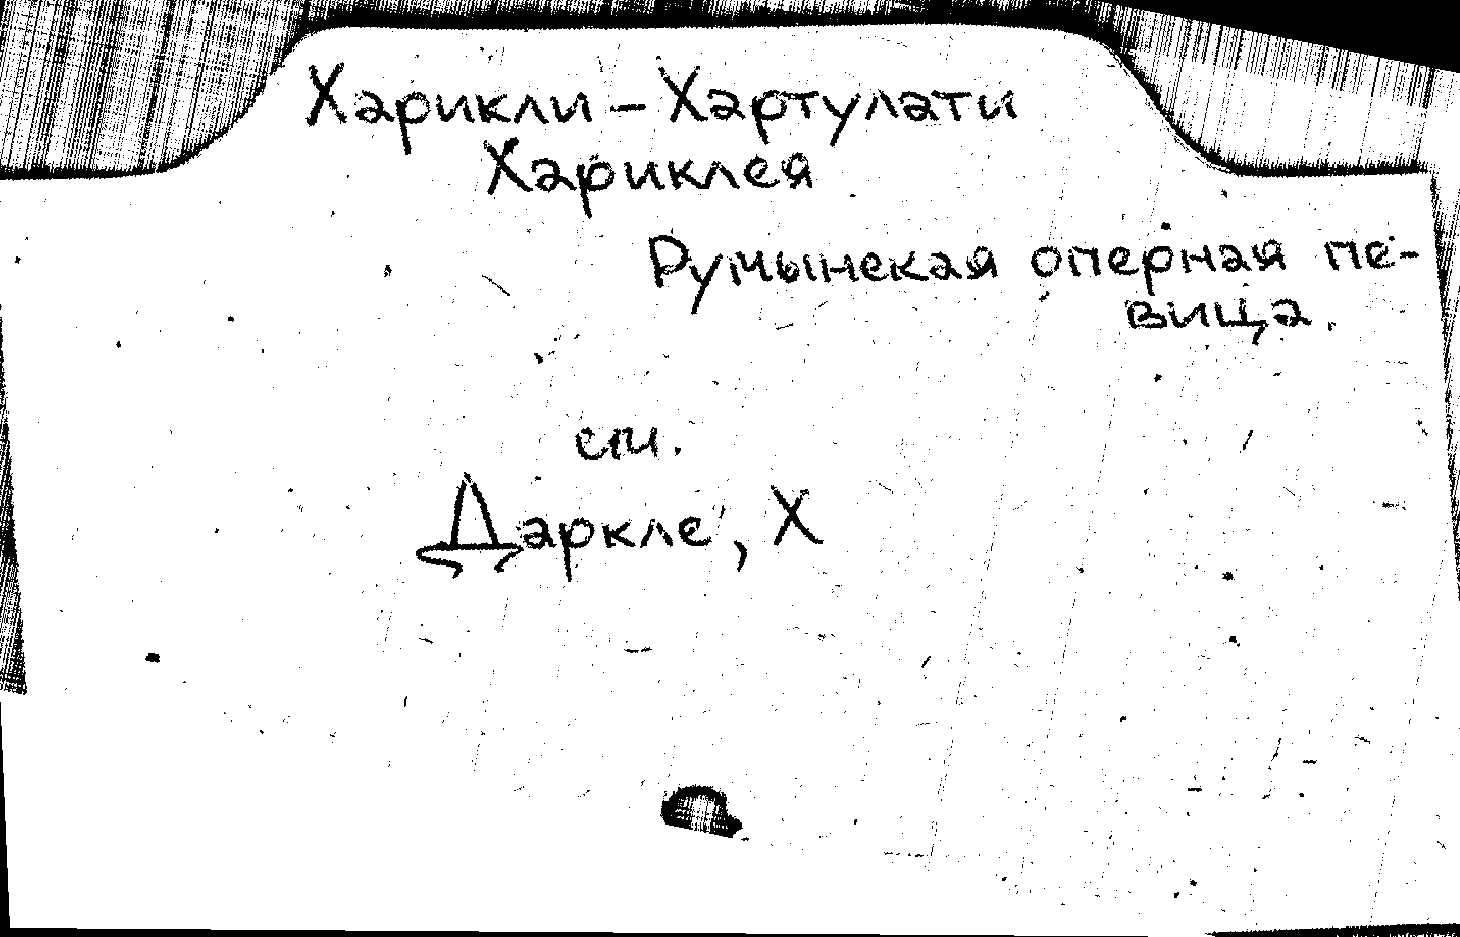 Харикли - Хартулати
Хариклея
Румынская оперная пе-
вица.
см.
Даркле, Х